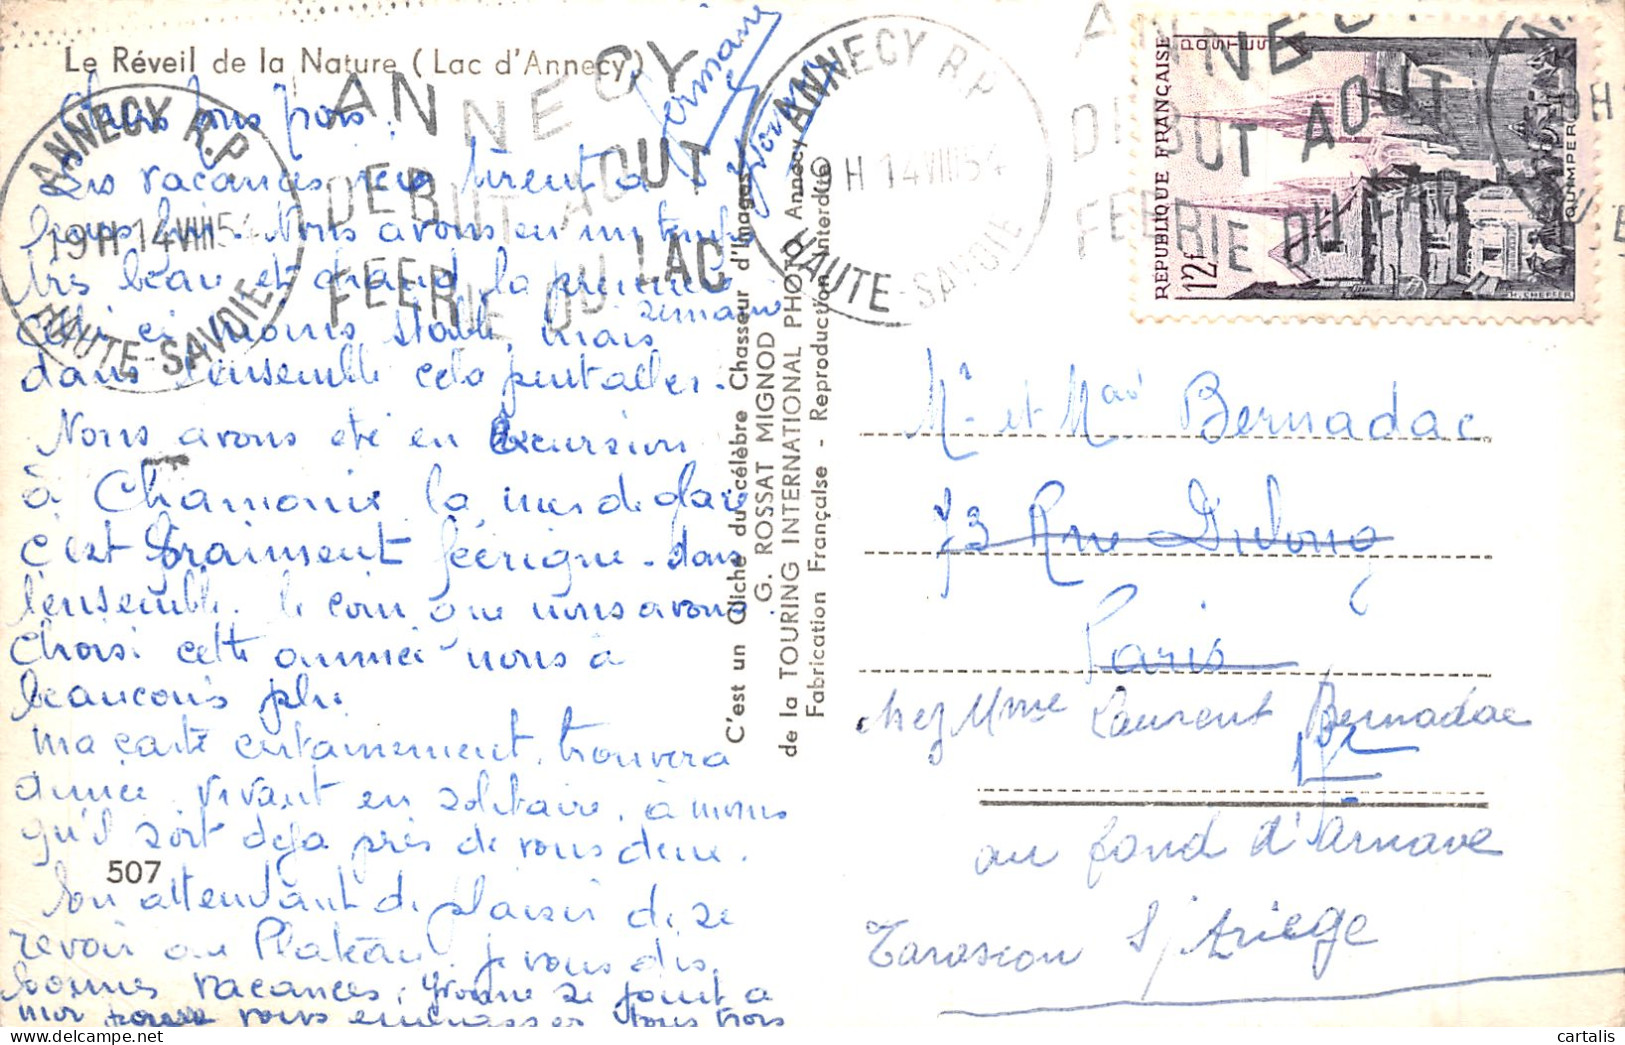 Le Réveil de la Nature (Lac d'Annecy)
Chers tous trois.
Les vacances tirent à
leurs fin. Nous avons eu un temps
très beau et chaud la première
semaine
Celle ci moins stable, mais
dans l'ensemble cela peut aller.
Nous avons été en Excursion
à Chamonix la mer de glace
c'est vraiment féerique. dans
l'ensemble. le coin que nous avons
choisi cette année nous a
beaucoup plu.
Ma carte certainement, trouvera
Aimée vivant en solitaire, à moins
qu'il soit déjà près de vous deux.
En attendant le plaisir de se
revoir au Plateau je vous dis
bonnes vacances, Yvonne se joint à
moi pour vous embrasser tous trois
Germaine
Yvonne
507
ANNECY R.P.
19H 14VIII54
HAUTE-SAVOIE
ANNECY
DEBUT AOUT
FEERIE DU LAC
ANNECY R.P.
H 14VIII54
HAUTE-SAVOIE
ANNECY
DEBUT AOUT
FEERIE DU LAC
C'est un Cliché du célèbre Chasseur d'Images
G. ROSSAT MIGNOD
de la TOURING INTERNATIONAL PHOTO Annecy
Fabrication Française - Reproduction Interdite
REPUBLIQUE FRANÇAISE
POSTES
12F
QUIMPER
H. CHEFFER
Mr et Mad Bernadac
73 Rue Dulong
Paris
chez Mme Laurent Bernadac
au fond d'Arnave
Tarascon s/ Ariege
cartalis